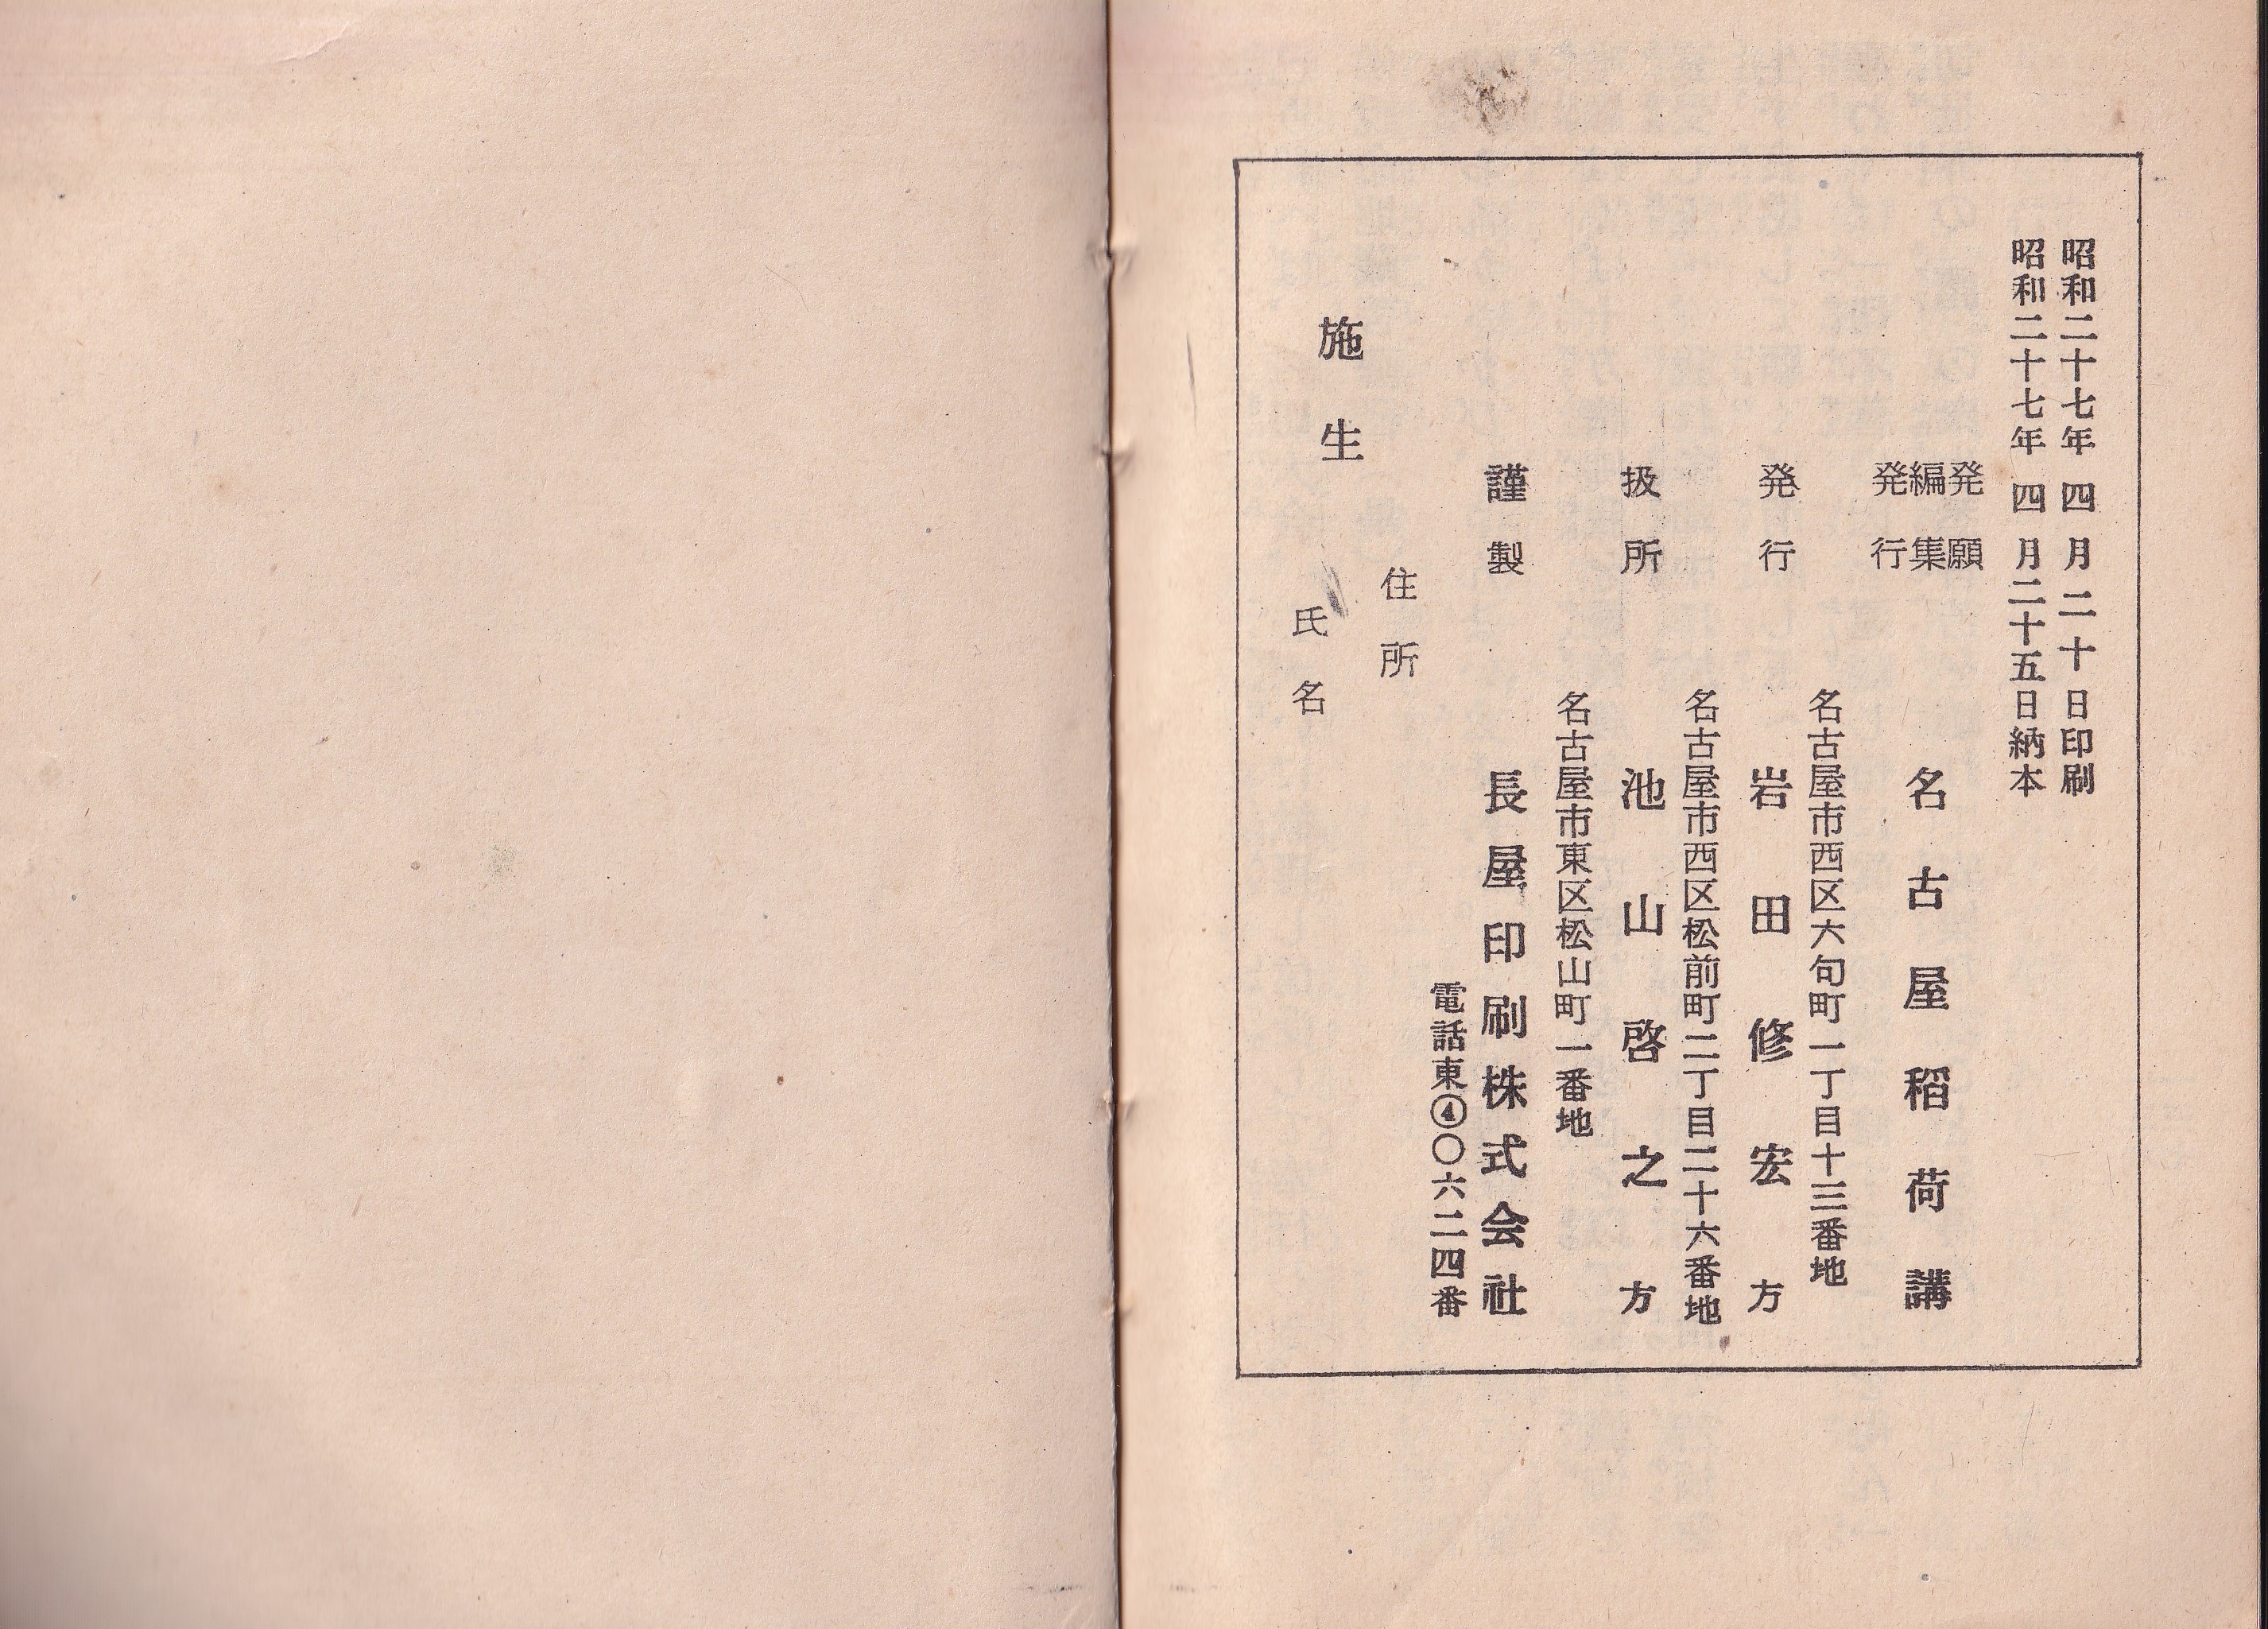 昭和二十七年四月二十日印刷
昭和二十七年四月二十五日納本
発願
編集
発行
名古屋稲荷講
名古屋市西区六句町一丁目十三番地
発行
岩田修宏方
名古屋市西区松前町二丁目二十六番地
扱所
池山啓之方
名古屋市東区松山町一番地
謹製
長屋印刷株式会社
電話東④〇六二四番
住所
施生
氏名